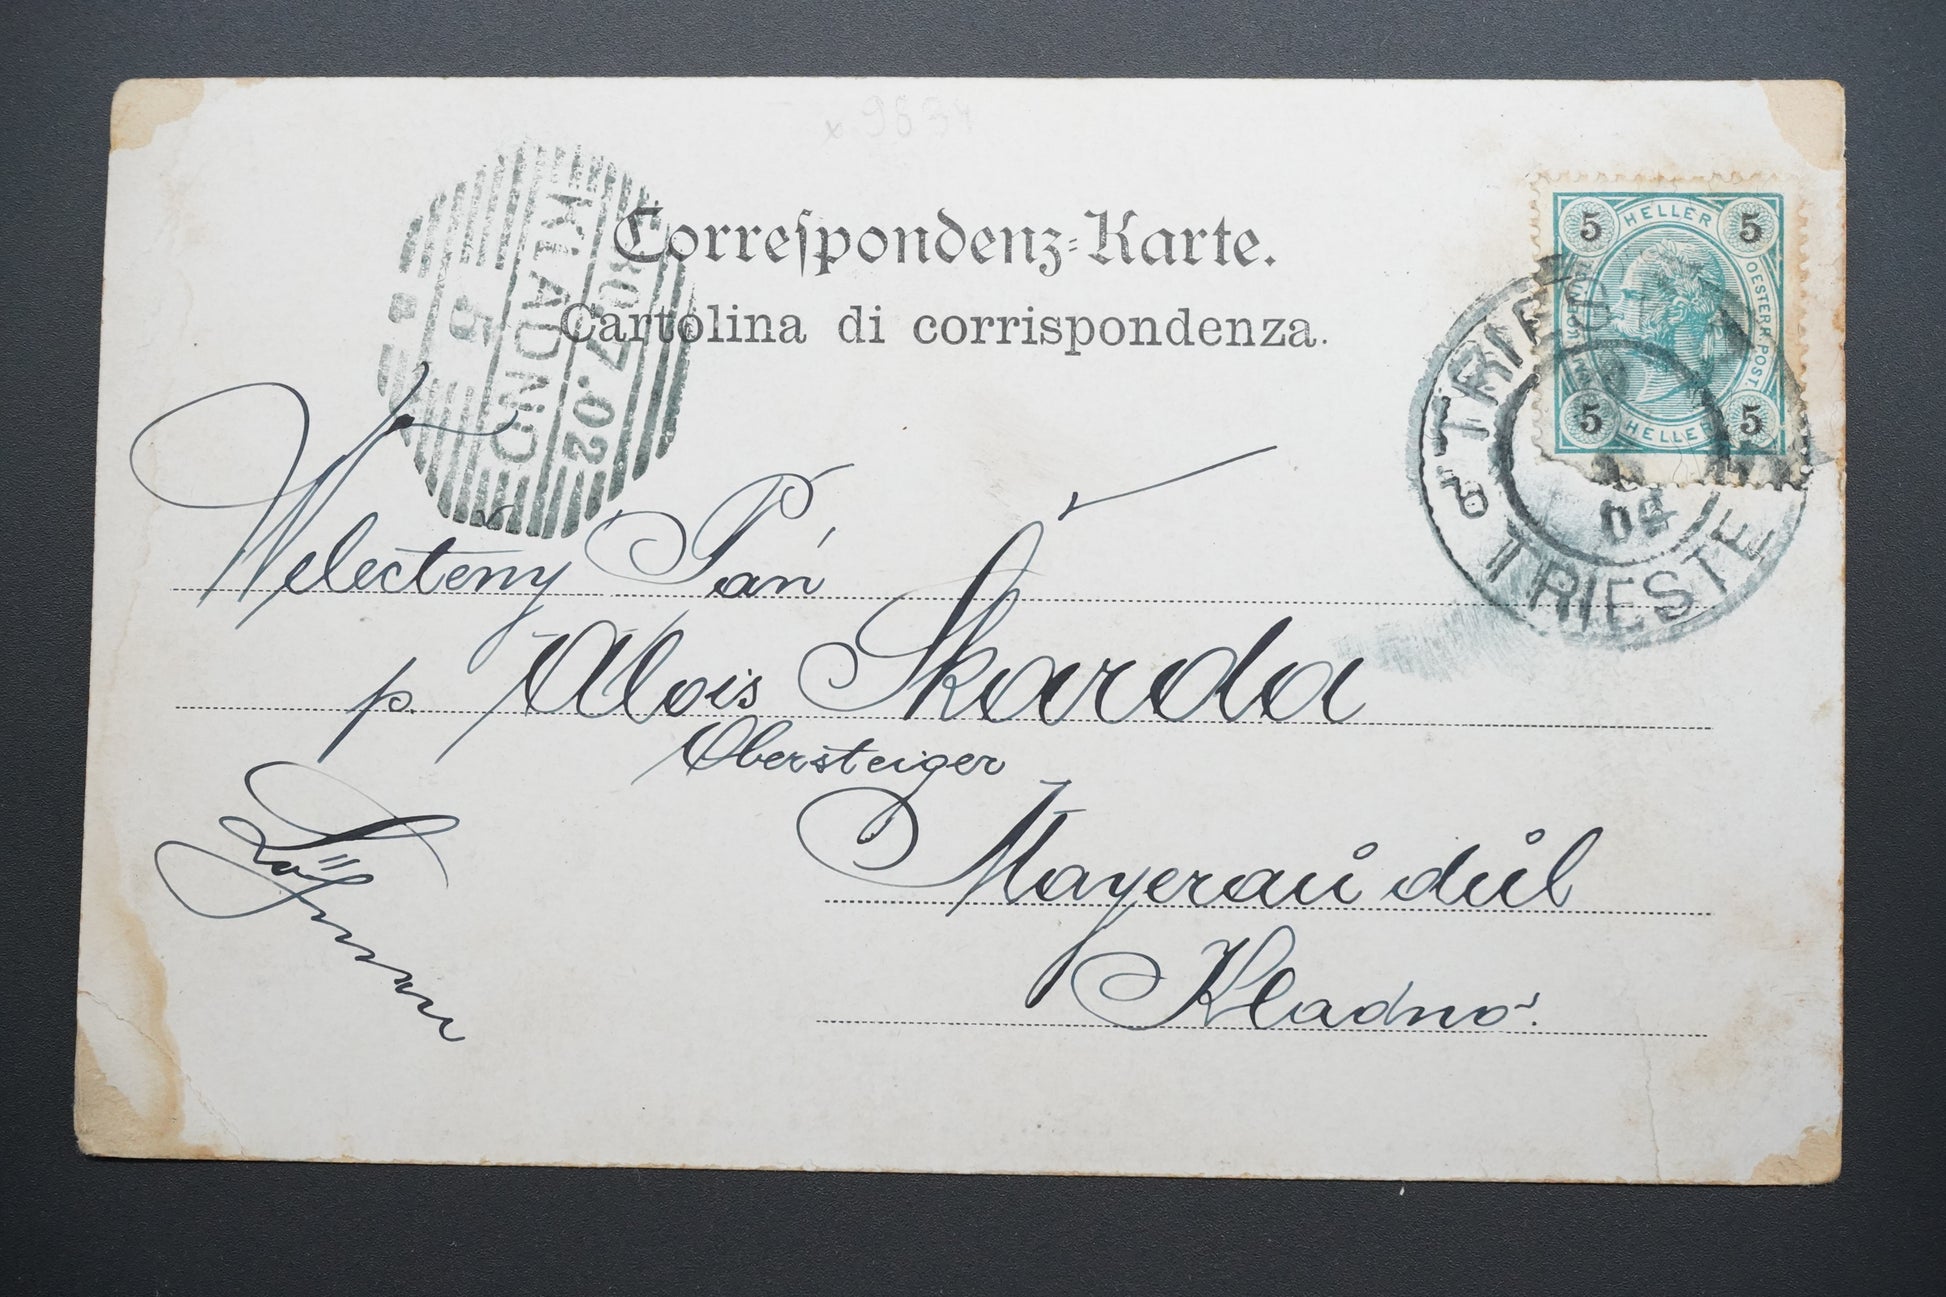 x 9834
Correspondenz-Karte.
Cartolina di corrispondenza.
KLADNO
30.7.02
5
a
5 HELLER 5
OESTERR. POST.
5 HELLER 5
TRIEST
TRIESTE
Velectený Pán
p. Alois Skarda
Obersteiger
Mayeraů důl
Kladno.